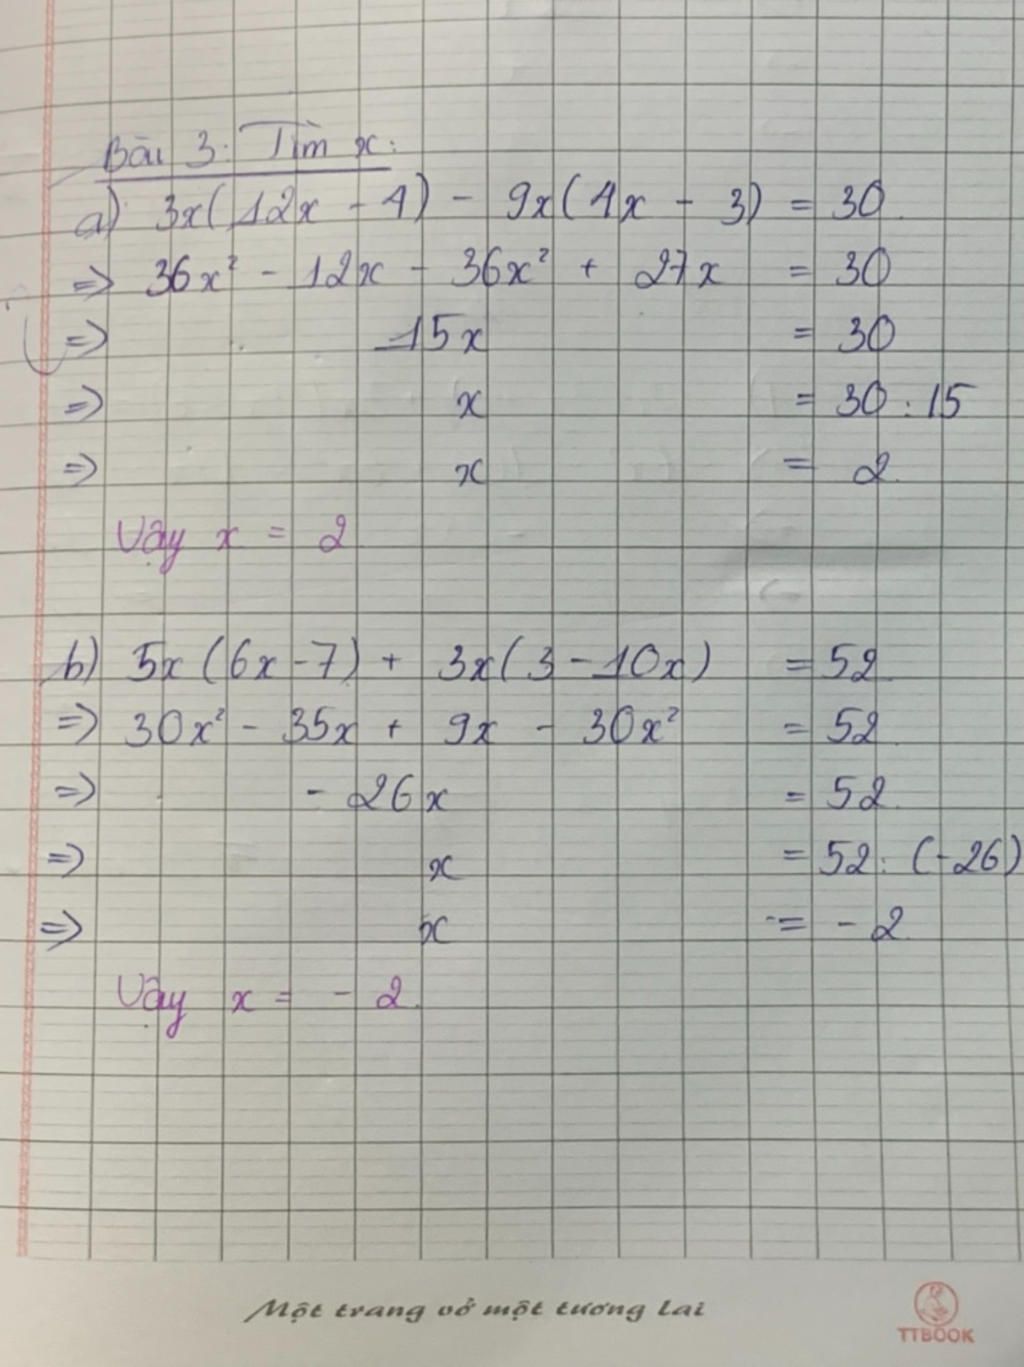 Bài 3: Tìm x:
a) 3x(12x - 4) - 9x(4x - 3) = 30
=> 36x² - 12x - 36x² + 27x = 30
=> 15x = 30
=> x = 30 : 15
=> x = 2
Vậy x = 2
b) 5x(6x - 7) + 3x(3 - 10x) = 52
=> 30x² - 35x + 9x - 30x² = 52
=> - 26x = 52
=> x = 52 : (-26)
=> x = - 2
Vậy x = - 2.
Một trang vở một tương lai
TTBOOK